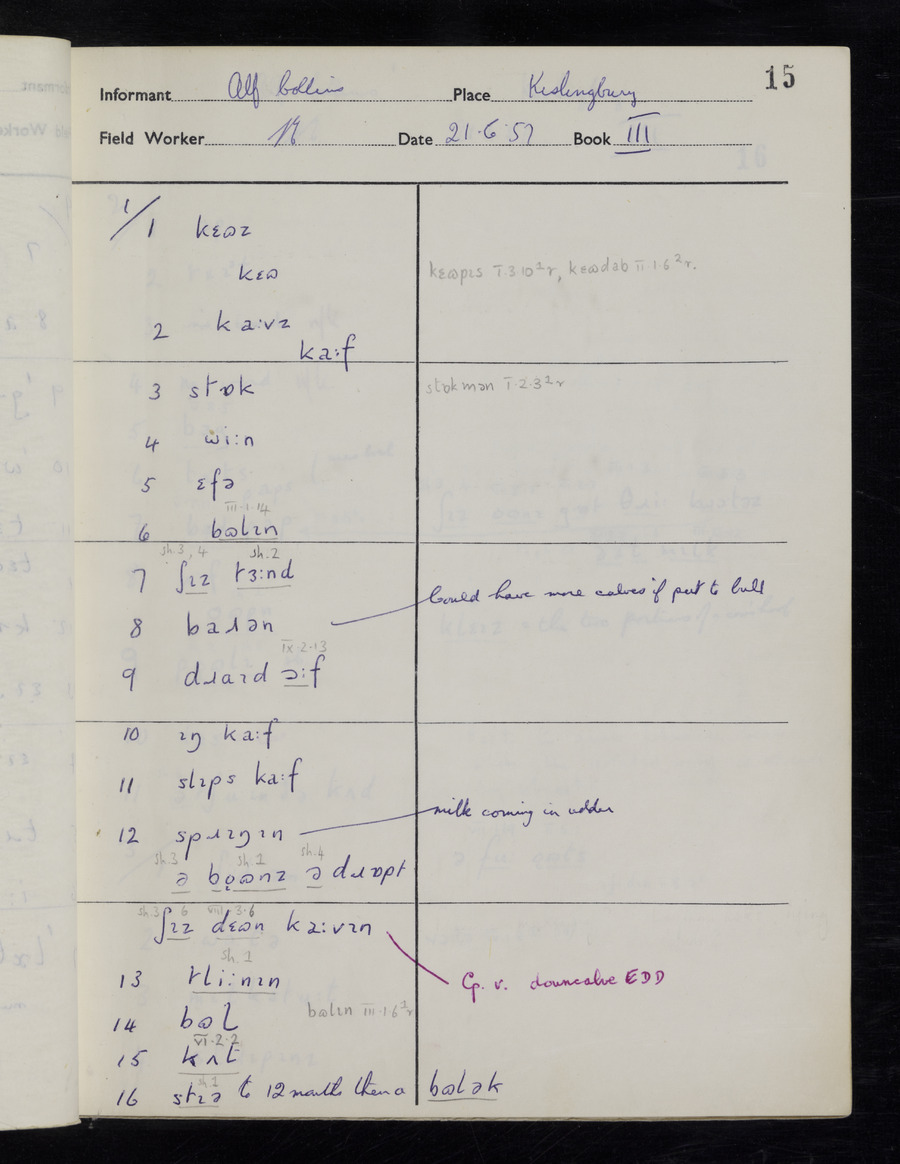 15
Informant Alf Collins Place Kislingbury
Field Worker Date 21.6.57 Book III
1/1 kɛɷz
kɛɷ kɛɷpɪs I.3.10¹r, kɛɷdab II.1.6²r.
2 ka:vz
ka:f
3 stɒk stɒkmən I.2.3¹r
4 wi:n
5 ɛfə
III.1.14
6 bɷlɪn
sh.3, 4 sh.2
7 ʃɪz tɜ:nd
Could have more calves if put to bull
8 baɹən
IX.2.13
9 dɹaɪd ə:f
10 ɪŋ ka:f
11 slɪps ka:f
milk coming in udder
12 spɹɪŋɪn
sh.3 sh.1 sh.4
ə bo̜ɷnz ə dɹɒpt
sh.3 6 VIII.3.6
ʃɪz dɛɷn ka:vɪn
sh.1
Cp. v. downcalve EDD
13 tli:nɪn
14 bɷl bɷlɪn III.1.6¹r
VI.2.2
15 kʌt
sh 1
16 stɪə to 12 months then a bɷlək